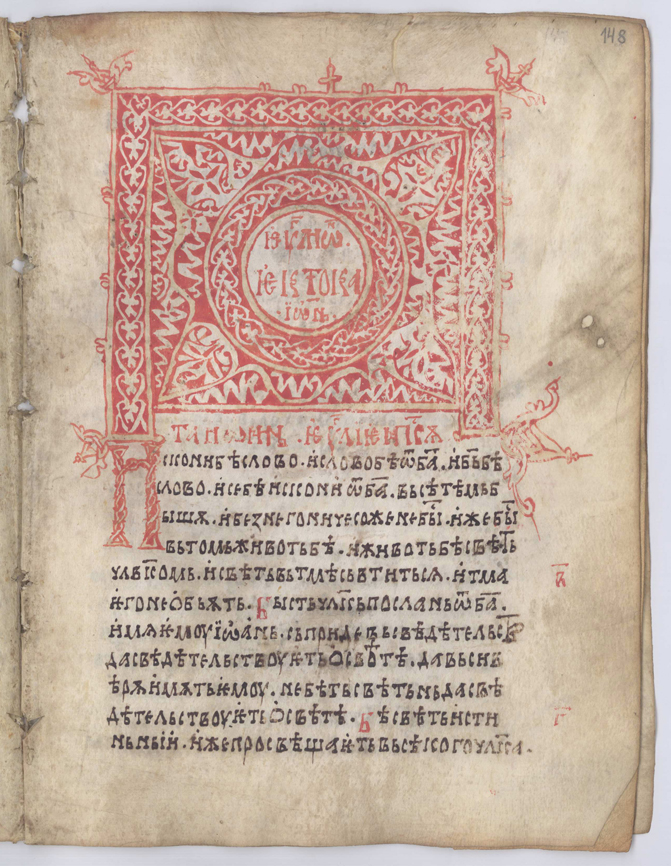 148
їѡ҃нь
Искони бѣ слово · и слово бѣ ѿ б҃а · и б҃ь бѣ
слово · и се бѣ искони ѿ б҃а · вьсѣ тѣмь б
ышѧ · и без него ничесоже не бы҃ · иже бы҃
вь томь животь бѣ · и животь бѣ свѣть
чл҃вкомь · и свѣть вь тмѣ свьтиться · и тма
ѥго не ѡбьѧть · Бысть чл҃кь послань ѿ б҃а ·
имѧ ѥмоу їѡань · сь приде вь свѣдѣтельс
да свѣдѣтельствоуѥть ѡ свѣтѣ · да вьси в
ѣрѧ имѧть ѥмоу · не бѣ ть свѣть нь да свѣ
дѣтельствоуѥть ѡ свѣтѣ · Бѣ свѣть исти
ньныи · иже просвѣщаѥть вьсѣкого чл҃ка ·
в҃
г҃